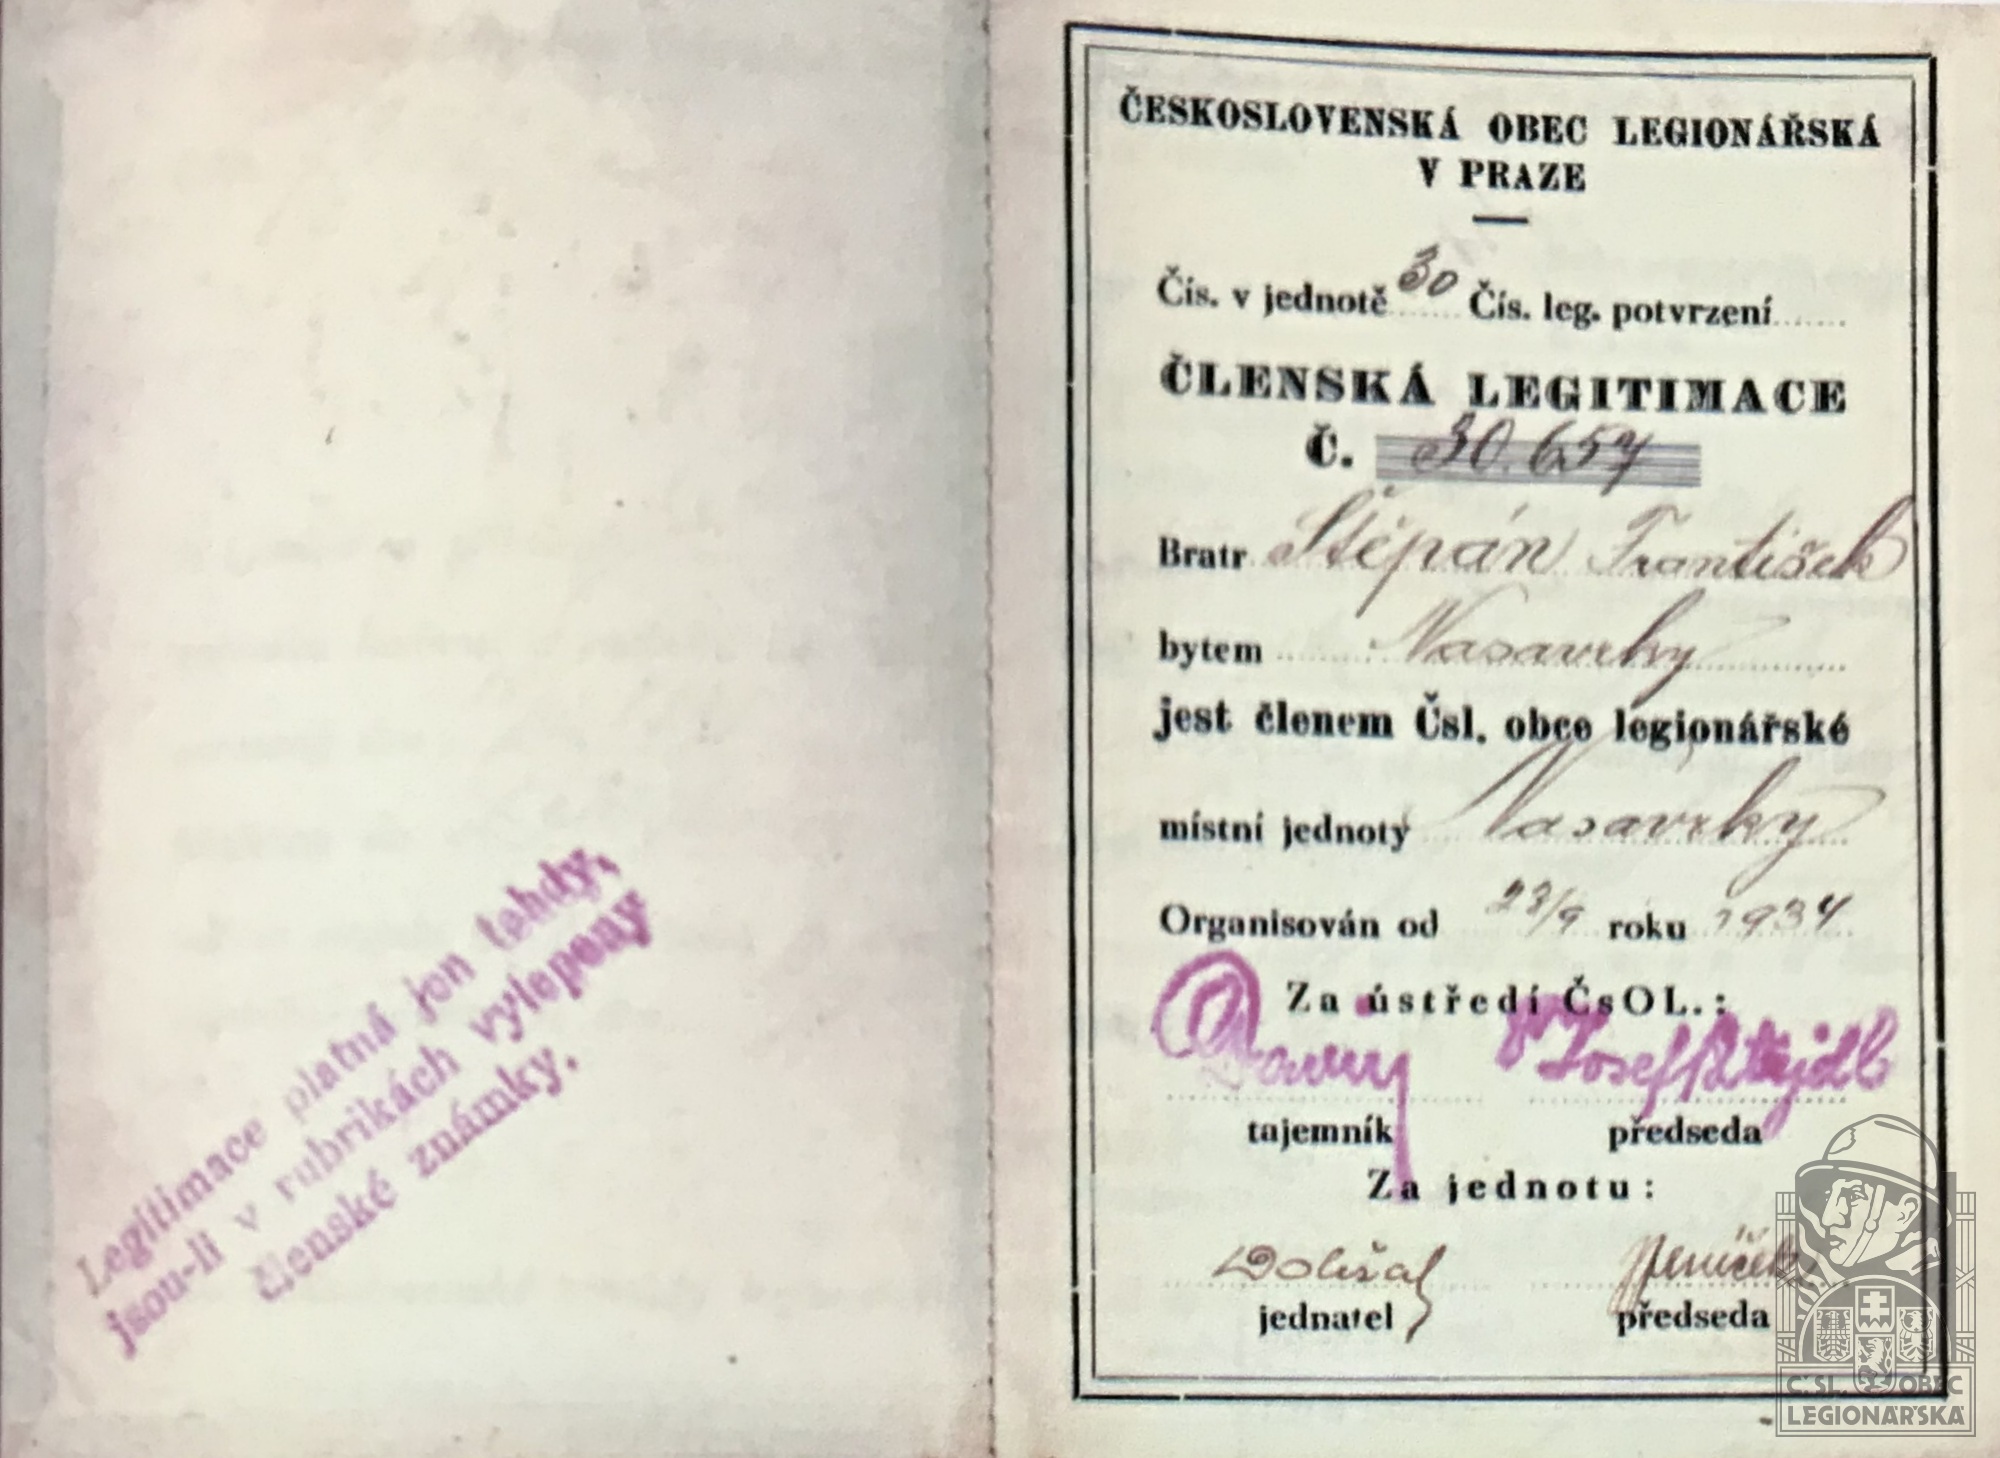 Legitimace platná jen tehdy,
jsou-li v rubrikách vylepeny
členské známky.
ČESKOSLOVENSKÁ OBEC LEGIONÁŘSKÁ
V PRAZE
Čís. v jednotě 30 Čís. leg. potvrzení
ČLENSKÁ LEGITIMACE
Č. 30.657
Bratr Štěpán František
bytem Nasavrky
jest členem Čsl. obce legionářské
místní jednoty Nasavrky
Organisován od 28/9 roku 1934
Za ústředí ČsOL.:
Josef
tajemník předseda
Za jednotu:
Doležal
jednatel předseda
Č. SL. OBEC
LEGIONÁŘSKÁ